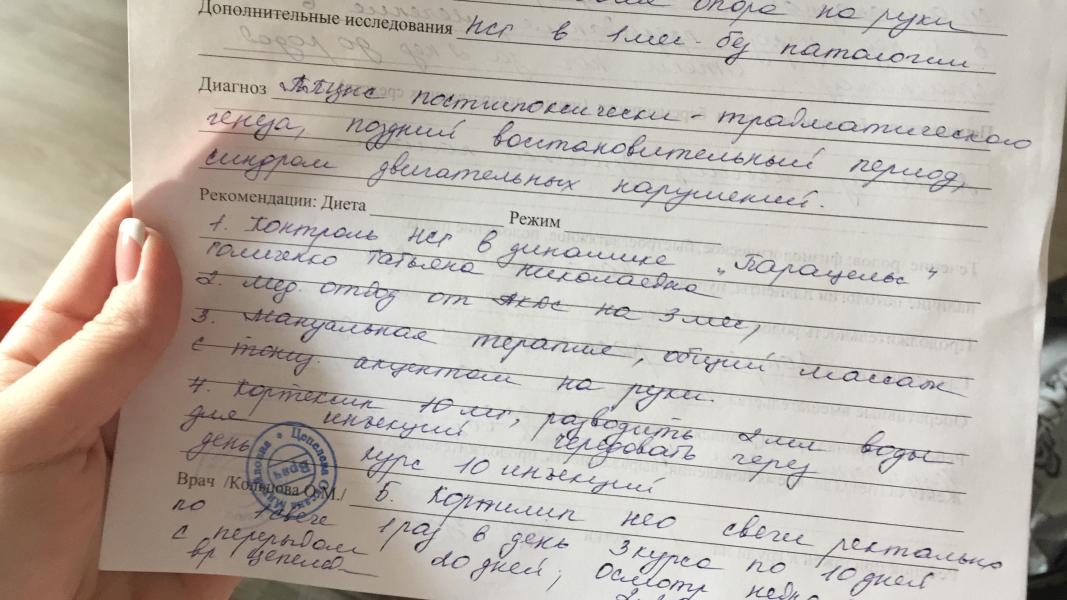 опора на руки
Дополнительные исследования НСГ в 1 мес - без патологии
Диагноз ППЦНС постгипоксически - травматического
генеза, поздний восстановительный период,
синдром двигательных нарушений.
Рекомендации: Диета Режим
1. Контроль НСГ в динамике "Парацельс"
Татьяна Николаевна
2. Мед. отвод от АКДС на 3 мес,
3. Мануальная терапия, общий массаж
с тониз. акцентом на руки.
4. Кортексин 10 мг, разводить 2 мл воды
для инъекций чередовать через
день курс 10 инъекций
Врач /Кольцова О.М./ 5. Кортилип нео свечи ректально
по 1 свече 1 раз в день 3 курса по 10 дней
с перерывом 20 дней, осмотр
вр Цепелева